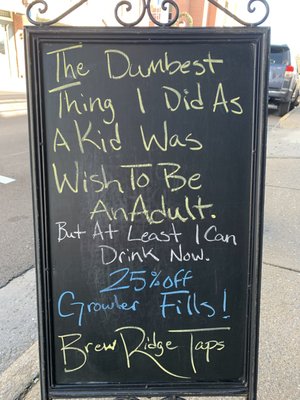 The Dumbest
Thing I Did As
A Kid Was
Wish To Be
An Adult.
But At Least I Can
Drink Now.
25% off
Growler Fills!
Brew Ridge Taps